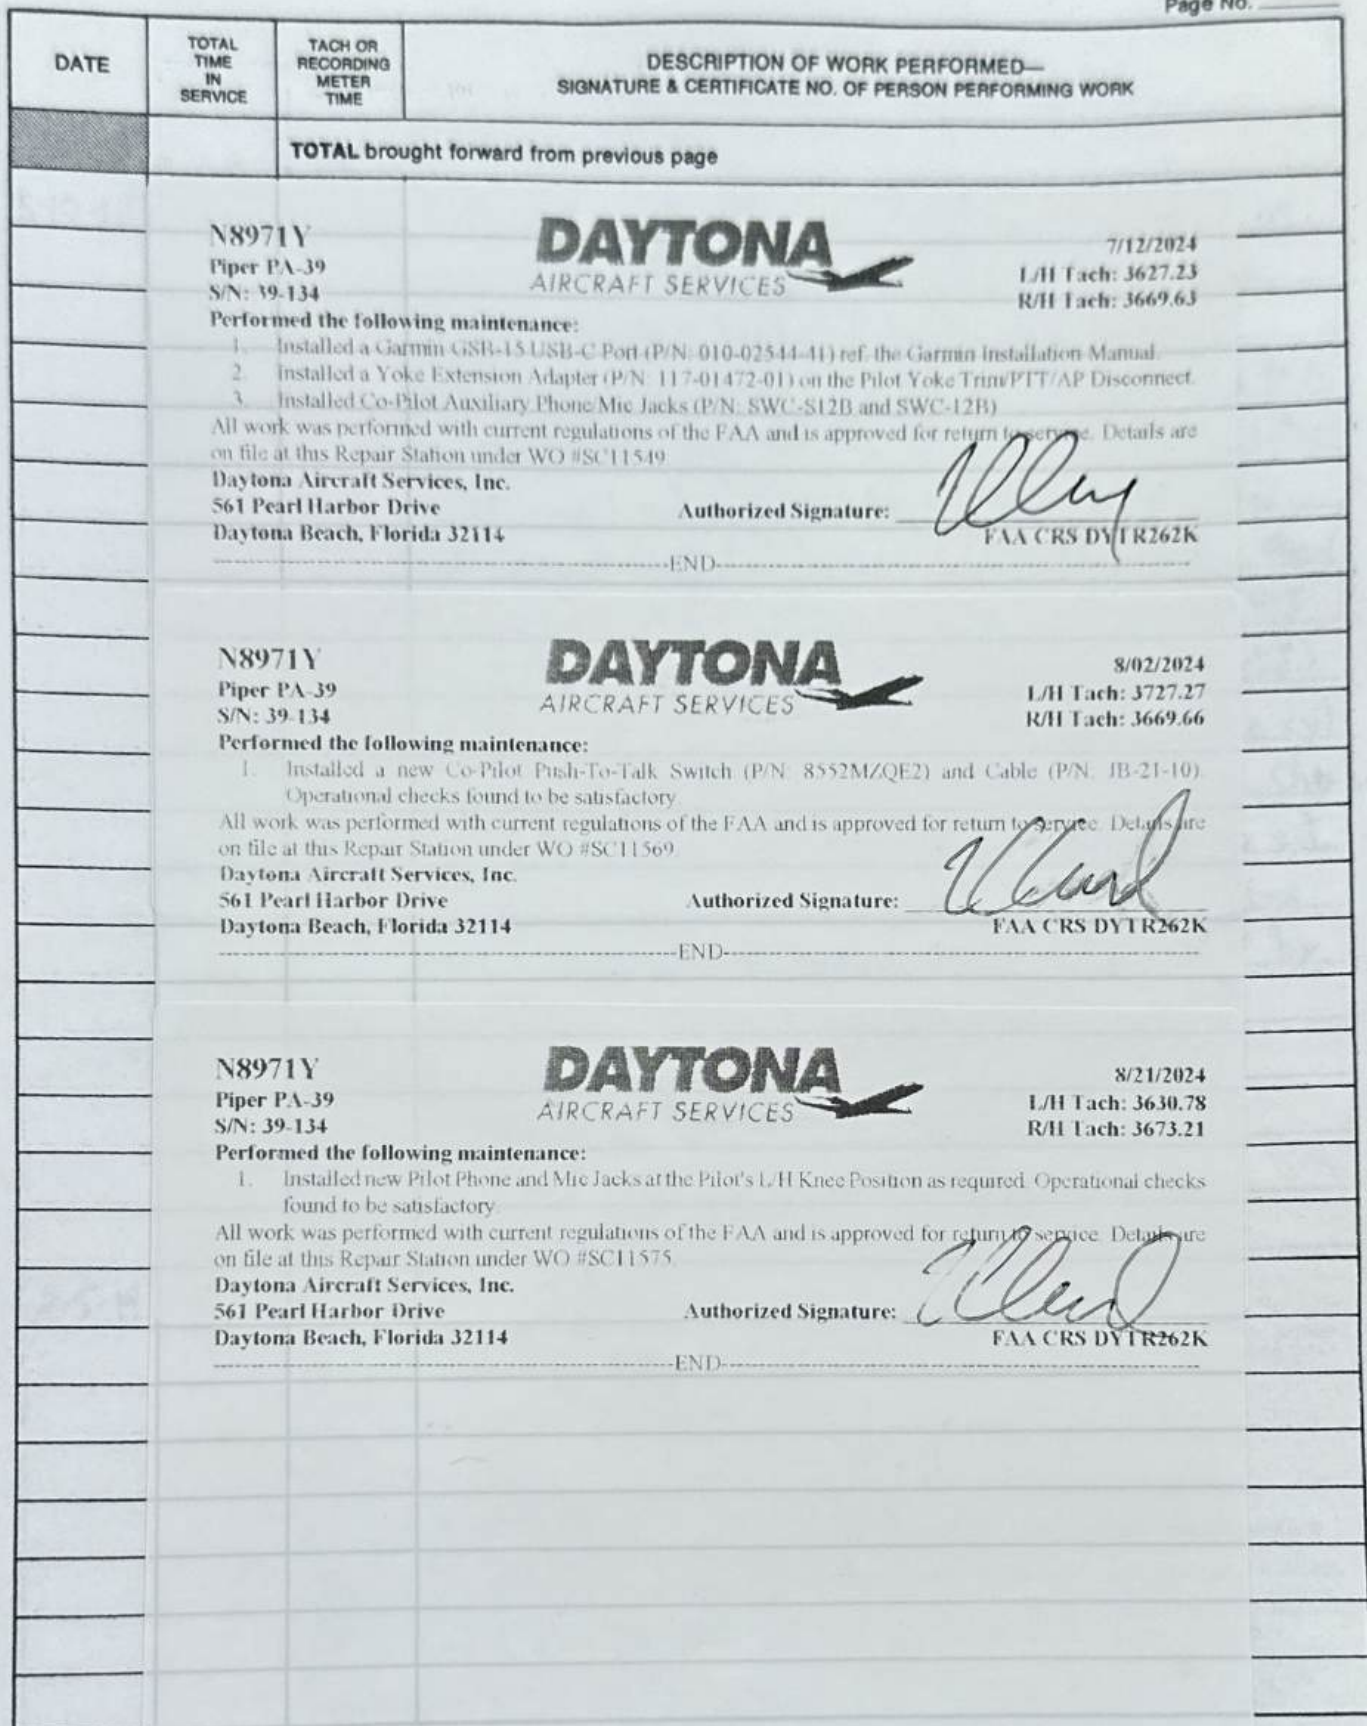 Page No.
DATE
TOTAL
TIME
IN
SERVICE
TACH OR
RECORDING
METER
TIME
DESCRIPTION OF WORK PERFORMED—
SIGNATURE & CERTIFICATE NO. OF PERSON PERFORMING WORK
TOTAL brought forward from previous page
N8971Y
Piper PA-39
S/N: 39-134
DAYTONA
AIRCRAFT SERVICES
7/12/2024
L/H Tach: 3627.23
R/H Tach: 3669.63
Performed the following maintenance:
1. Installed a Garmin GSB-15 USB-C Port (P/N: 010-02544-41) ref. the Garmin Installation Manual.
2. Installed a Yoke Extension Adapter (P/N: 117-01472-01) on the Pilot Yoke Trim/PTT/AP Disconnect.
3. Installed Co-Pilot Auxiliary Phone/Mic Jacks (P/N: SWC-S12B and SWC-12B)
All work was performed with current regulations of the FAA and is approved for return to service. Details are
on file at this Repair Station under WO #SC11549
Daytona Aircraft Services, Inc.
561 Pearl Harbor Drive
Authorized Signature:
Daytona Beach, Florida 32114
FAA CRS DYTR262K
END
N8971Y
Piper PA-39
S/N: 39-134
DAYTONA
AIRCRAFT SERVICES
8/02/2024
L/H Tach: 3727.27
R/H Tach: 3669.66
Performed the following maintenance:
1. Installed a new Co-Pilot Push-To-Talk Switch (P/N: 8552MZQE2) and Cable (P/N: JB-21-10).
Operational checks found to be satisfactory.
All work was performed with current regulations of the FAA and is approved for return to service. Details are
on file at this Repair Station under WO #SC11569.
Daytona Aircraft Services, Inc.
561 Pearl Harbor Drive
Authorized Signature:
Daytona Beach, Florida 32114
FAA CRS DYTR262K
END
N8971Y
Piper PA-39
S/N: 39-134
DAYTONA
AIRCRAFT SERVICES
8/21/2024
L/H Tach: 3630.78
R/H Tach: 3673.21
Performed the following maintenance:
1. Installed new Pilot Phone and Mic Jacks at the Pilot's L/H Knee Position as required. Operational checks
found to be satisfactory.
All work was performed with current regulations of the FAA and is approved for return to service. Details are
on file at this Repair Station under WO #SC11575.
Daytona Aircraft Services, Inc.
561 Pearl Harbor Drive
Authorized Signature:
Daytona Beach, Florida 32114
FAA CRS DYTR262K
END